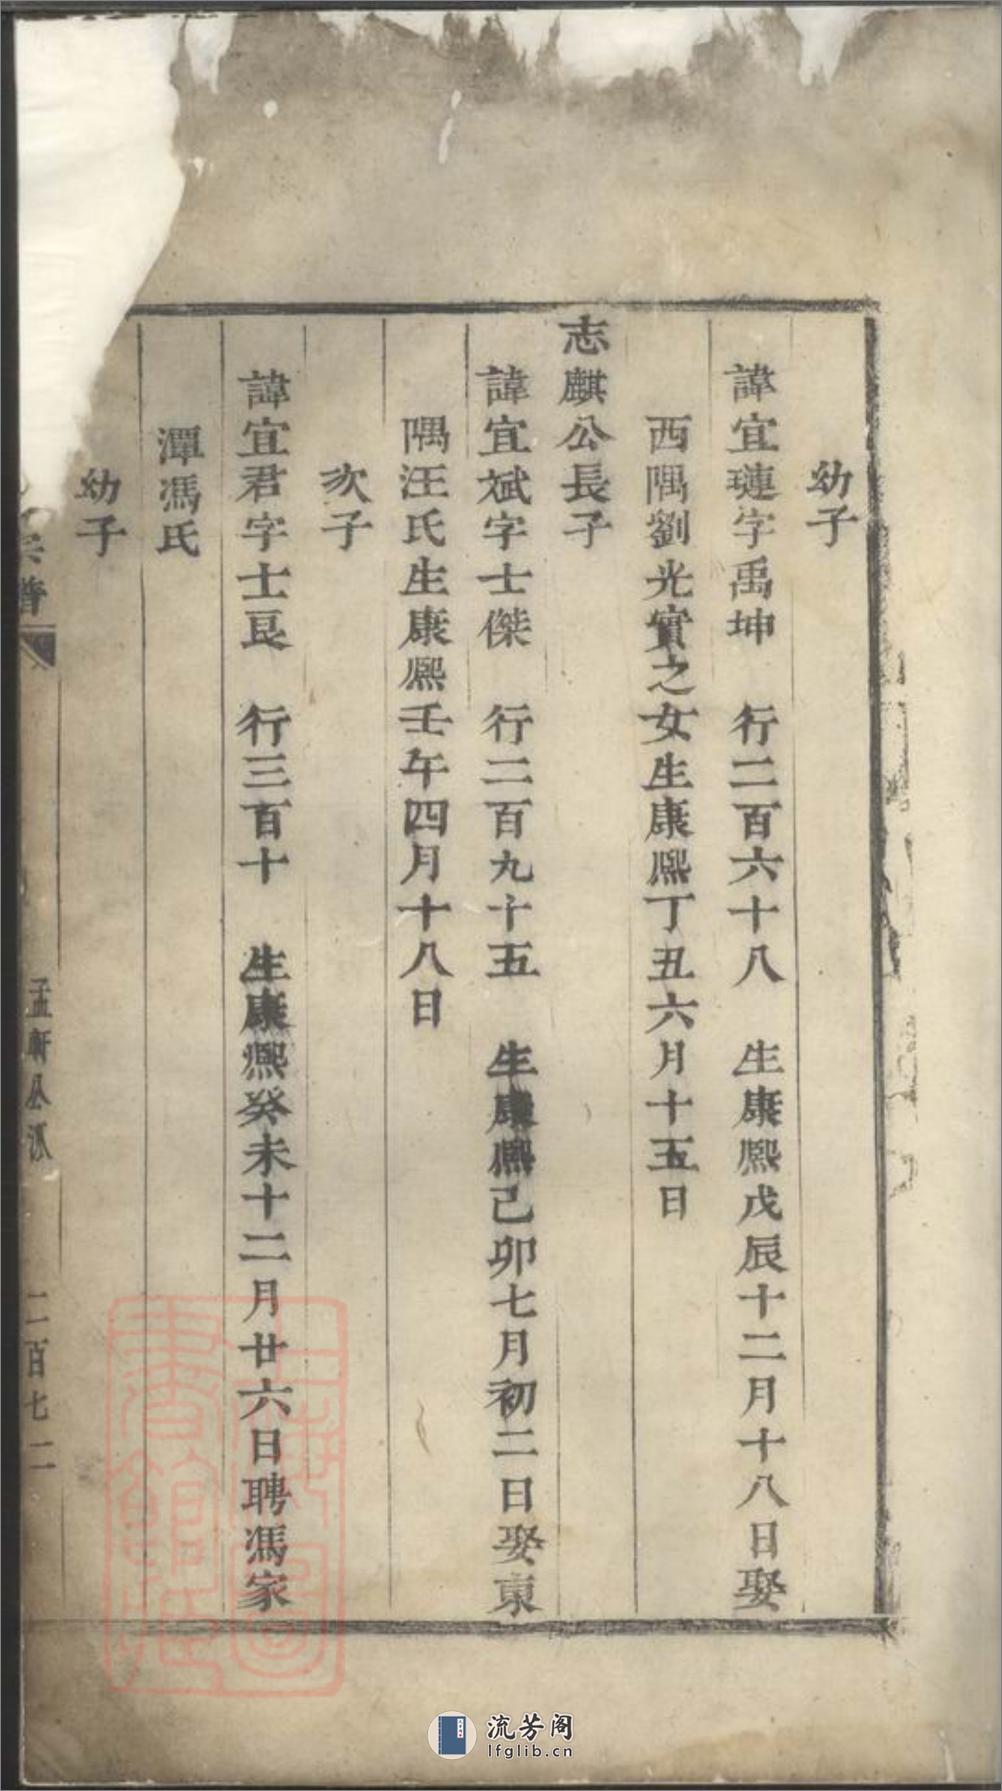 幼子
諱宜璉字禹坤　行二百六十八　生康熙戊辰十二月十八日娶
西隅劉光實之女生康熙丁丑六月十五日
志麒公長子
諱宜斌字士傑　行二百九十五　生康熙己卯七月初二日娶東
隅汪氏生康熙壬午四月十八日
次子
諱宜君字士良　行三百十　生康熙癸未十二月廿六日聘馮家
潭馮氏
幼子
宗譜　孟軒公派　二百七二
流芳阁
lfglib.cn